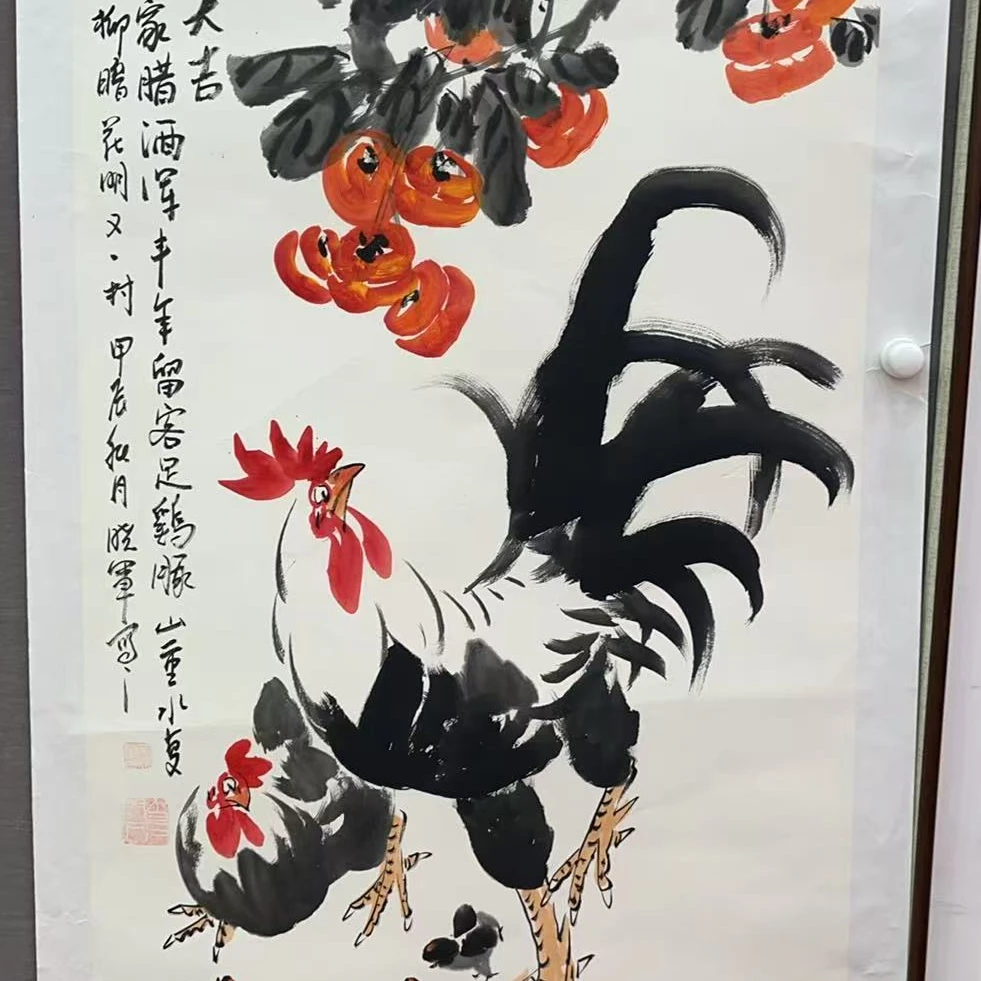 大吉
家腊酒浑丰年留客足鷄豚山重水复
柳暗花明又一村甲辰秋月晓军写